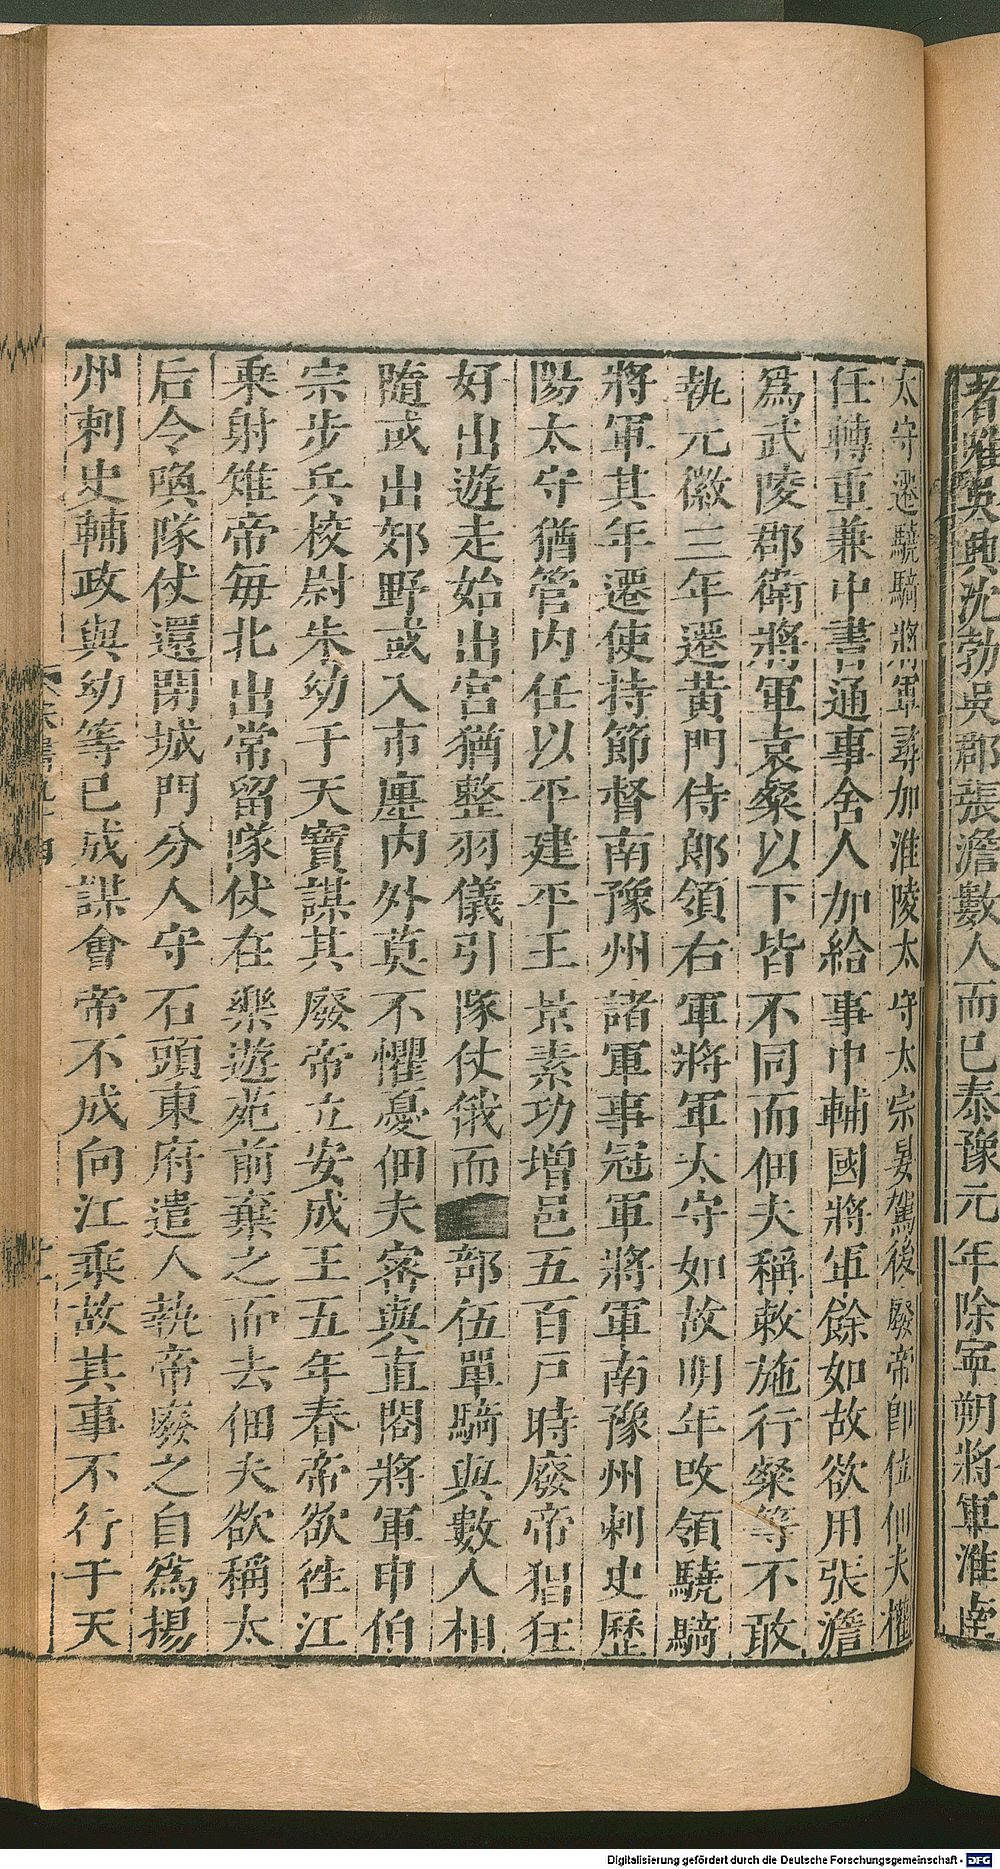 者雖吳興沈勃吳郡張澹數人而已泰豫元年除寧朔將軍淮南
太守遷驍騎將軍尋加淮陵太守太宗晏駕後廢帝即位佃夫權
任轉重兼中書通事舍人加給事中輔國將軍餘如故欲用張澹
爲武陵郡衛將軍袁粲以下皆不同而佃夫稱敕施行粲等不敢
執元徽三年遷黄門侍郎領右軍將軍太守如故明年改領驍騎
將軍其年遷使持節督南豫州諸軍事冠軍將軍南豫州刺史歷
陽太守猶管内任以平建平王景素功增邑五百戸時廢帝猖狂
好出遊走始出宮猶整羽儀引隊仗俄而部伍單騎與數人相
隨或出郊野或入市廛内外莫不懼憂佃夫密與直閤將軍申伯
宗步兵校尉朱幼于天寶謀其廢帝立安成王五年春帝欲徃江
乘射雉帝每北出常留隊仗在樂遊苑前棄之而去佃夫欲稱太
后令喚隊仗還閉城門分人守石頭東府遣人執帝廢之自爲揚
州刺史輔政與幼等已成謀會帝不成向江乘故其事不行于天
Digitalisierung gefördert durch die Deutsche Forschungsgemeinschaft - DFG